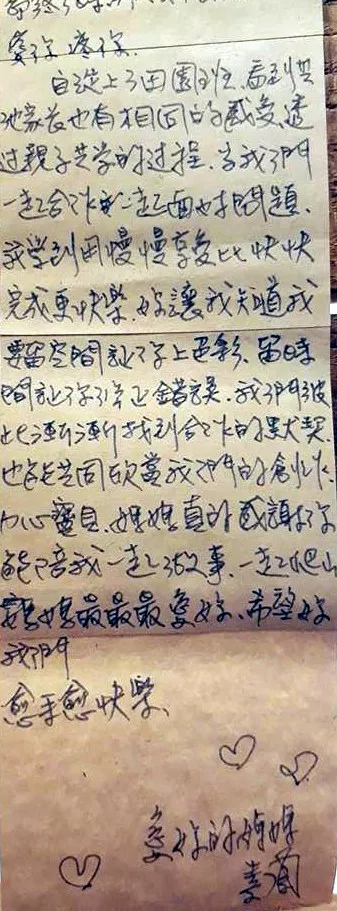 愛你疼你.
自從上了田園班.看到其
他家長也有相同的感受透
过親子共学的过程.当我們
一起合作或一起面对問題.
我学到用慢慢享受比快快
完成更快樂.妳讓我知道我
要留空間让你上色彩.留時
間让你修正錯誤.我們彼
此漸漸找到合作的默契.
也能共同欣當我們的創作.
心寶貝.媽媽真的感謝你
能陪我一起做事.一起爬山
媽媽最最最愛妳.希望妳
我們
愈手愈快樂.
愛妳的媽媽